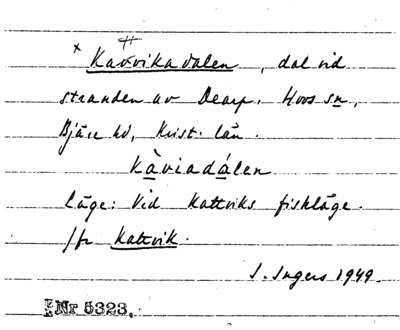 × Kavvikadalen, dal vid
tt
stranden av Dearp. Hovs sn,
Bjäre hd, Krist. län.
kàviadálen
Läge: Vid Kattviks fiskläge.
/fr Kattvik.
I. Ingers 1949.
Nr 5323.